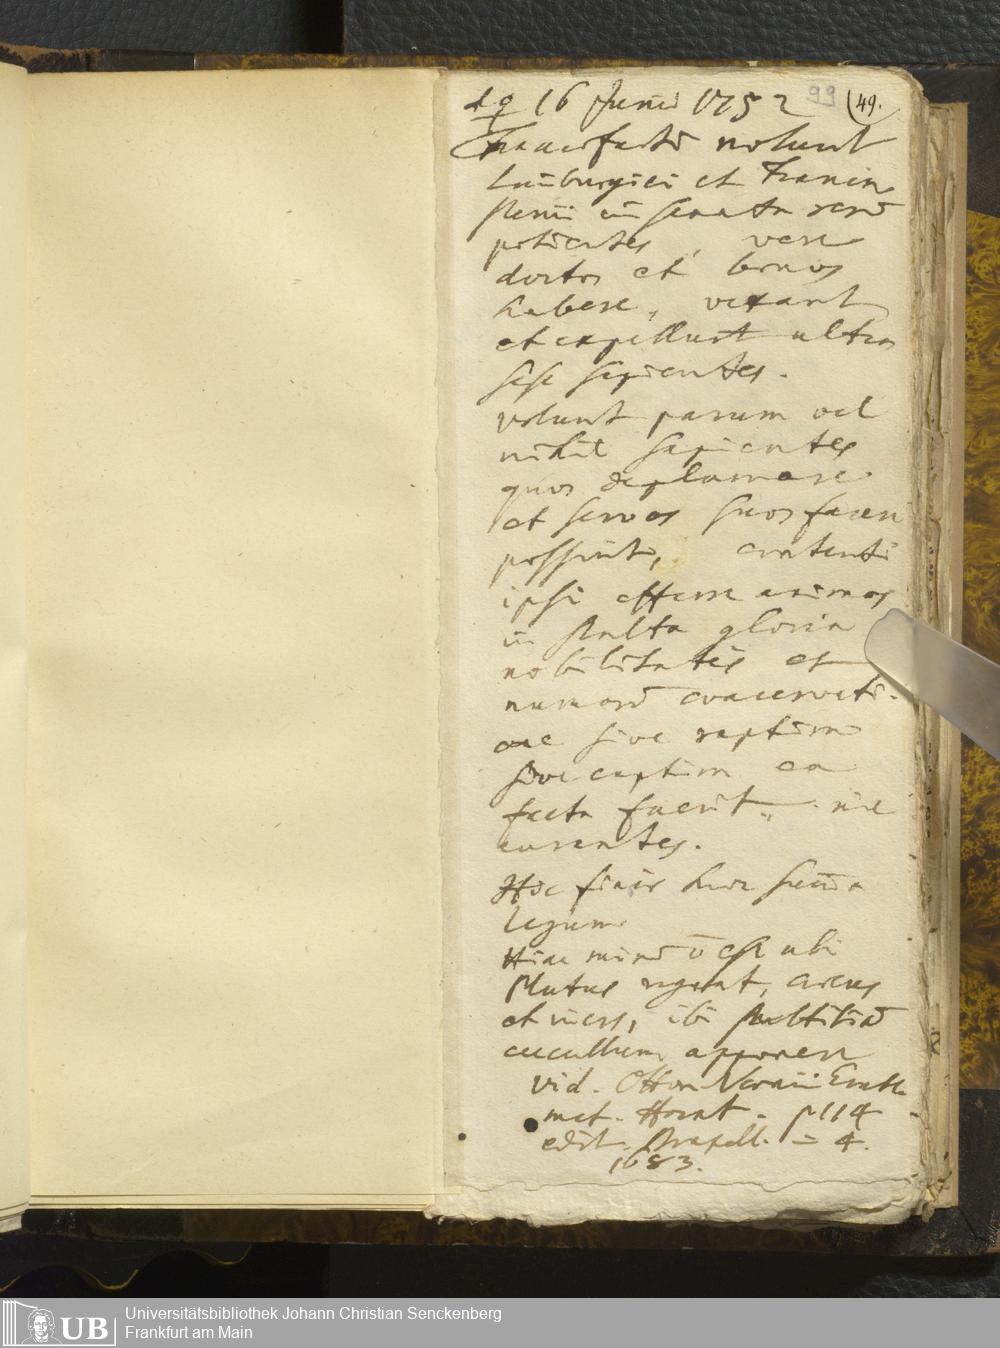 d. ♀ 16 Junii 1752 99 (49.
Francofurti nolunt
Limburgici et Frauen
stenii in Senatu rerum
potientes, vere
doctos et bonos
habere, vexant
et expellunt ultra
sese sapientes.
volunt parum vel
nihil sapientes
quos deplumare
et servos suos facere
possint, contenti
ipsi efferre animos
in stulta gloria
nobilitatis et
numorum coacervati-
one sive raptim
sive captim ea
facta fuerit, nil
curantes.
Hic finis huic summa
legum
Hinc mirum non est ubi
Plutus regnat, circus
et iners, ibi stultitiam
cucullum apponere
vid. Otton. Vaenii Emble
mat. Horat. p 114
edit. Bruxell. = 4.
1683.
Universitätsbibliothek Johann Christian Senckenberg
Frankfurt am Main
UB